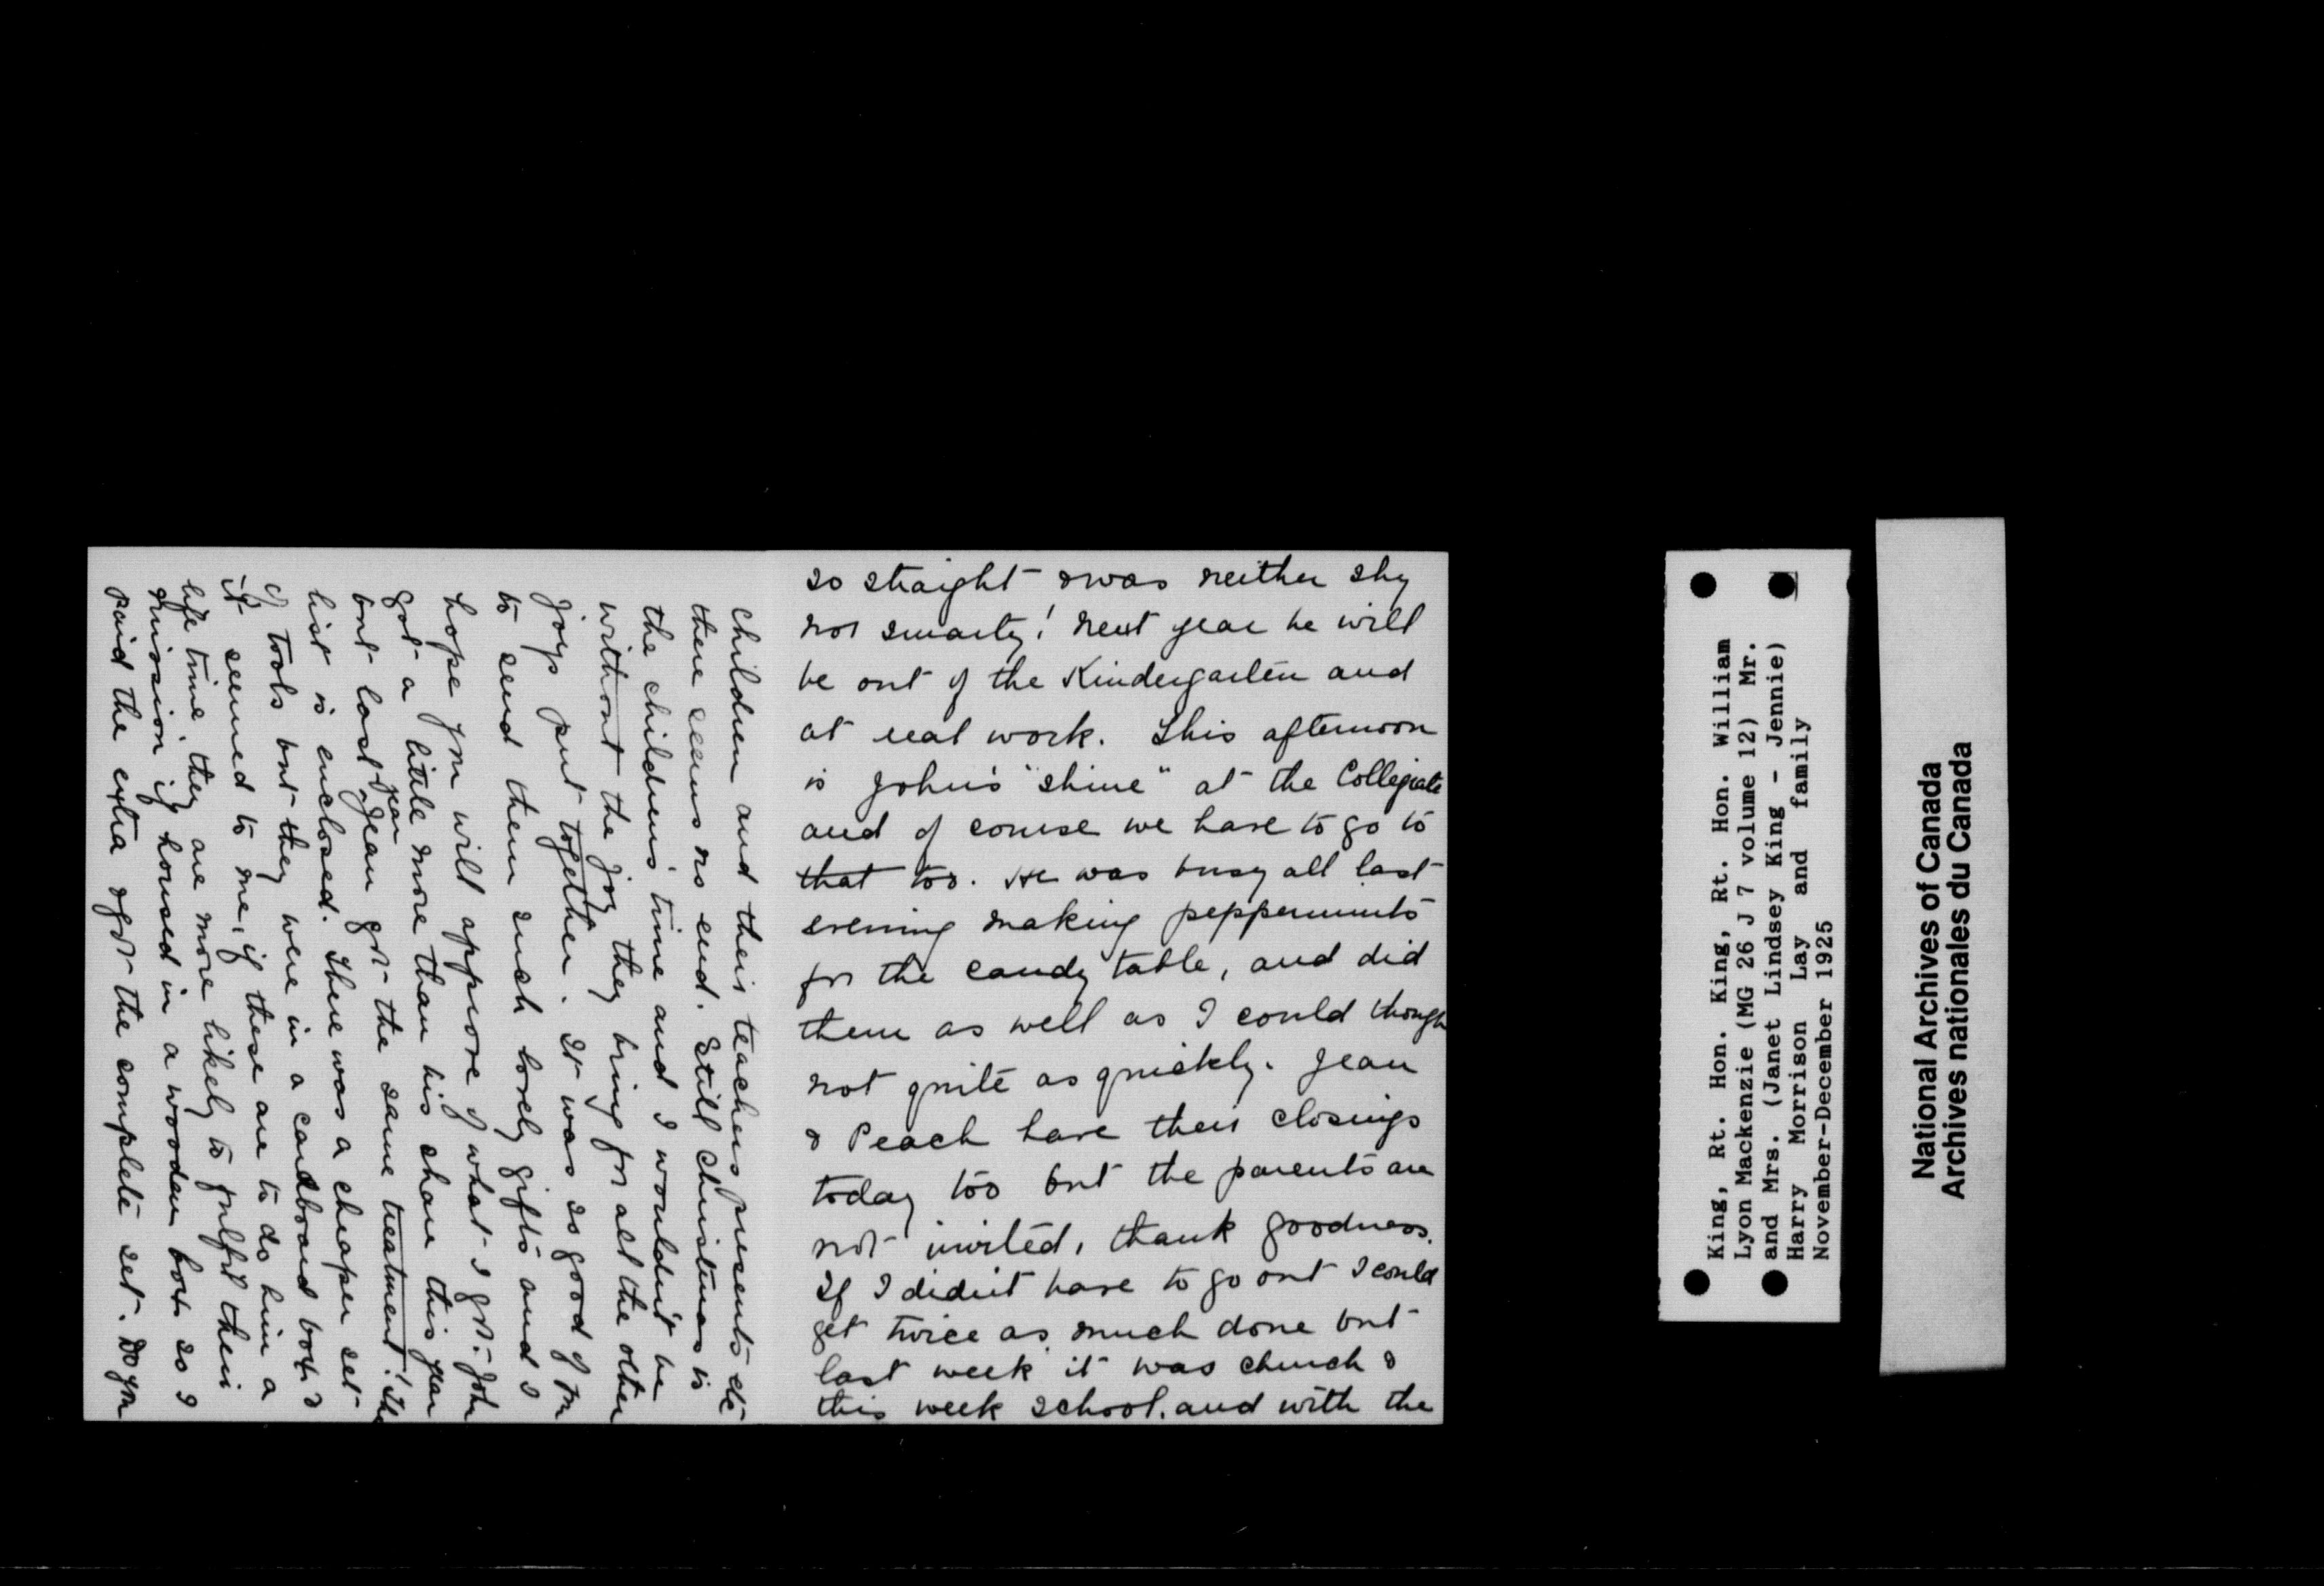 so straight & was neither shy
nor smarty! next year he will
be out of the Kindergarten and
at real work. This afternoon
is John's "shine" at the Collegiate
and of course we have to go to
that too. He was busy all last
evening making peppermints
for the candy table, and did
them as well as I could though
not quite as quickly. Jean
& Peach have their closings
today too but the parents are
not invited, thank goodness.
If I didn't have to go out I could
get twice as much done but
last week it was church &
this week school. and with the
children and their teachers presents etc
there seems no end. Still Christmas is
the children's time and I wouldn't be
without the joy they bring for all the other
joys put together. It was so good of you
to send them such lovely gifts and I
hope you will approve of what I got. John
got a little more than his share this year
but last year Jean got the same treatment! The
list is enclosed. There was a cheaper set
of tools but they were in a cardboard box &
it seemed to me, if these are to do him a
life time, they are more likely to fulfil their
mission if housed in a wooden box so I
paid the extra & got the complete set. Do you
King, Rt. Hon. King, Rt. Hon. William
Lyon Mackenzie (MG 26 J 7 volume 12) Mr.
and Mrs. (Janet Lindsey King - Jennie)
Harry Morrison Lay and family
November-December 1925
National Archives of Canada
Archives nationales du Canada